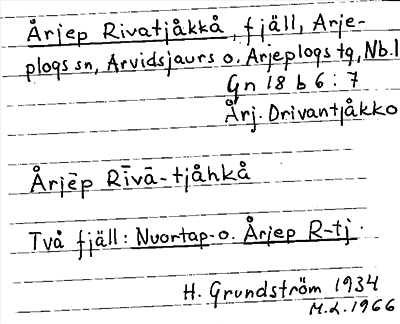 Årjep Rivatjåkkå, fjäll, Arje-
plogs sn, Arvidsjaurs o. Arjeplogs tg, Nb.l
Gn 18 b 6 : 7
Årj. Drivantjåkko
Årjēp Rīvā-tjåhkå
Två fjäll: Nuortap- o. Årjep R-tj.
H. Grundström 1934
M.L. 1966